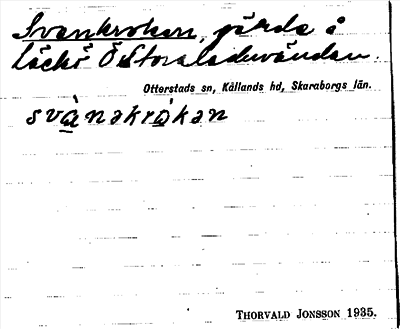 Svankroken, gärde å
Läckö Ö Storaladuvändan.
Otterstads sn, Kållands hd, Skaraborgs län.
svànəkròkən
THORVALD JONSSON 1935.